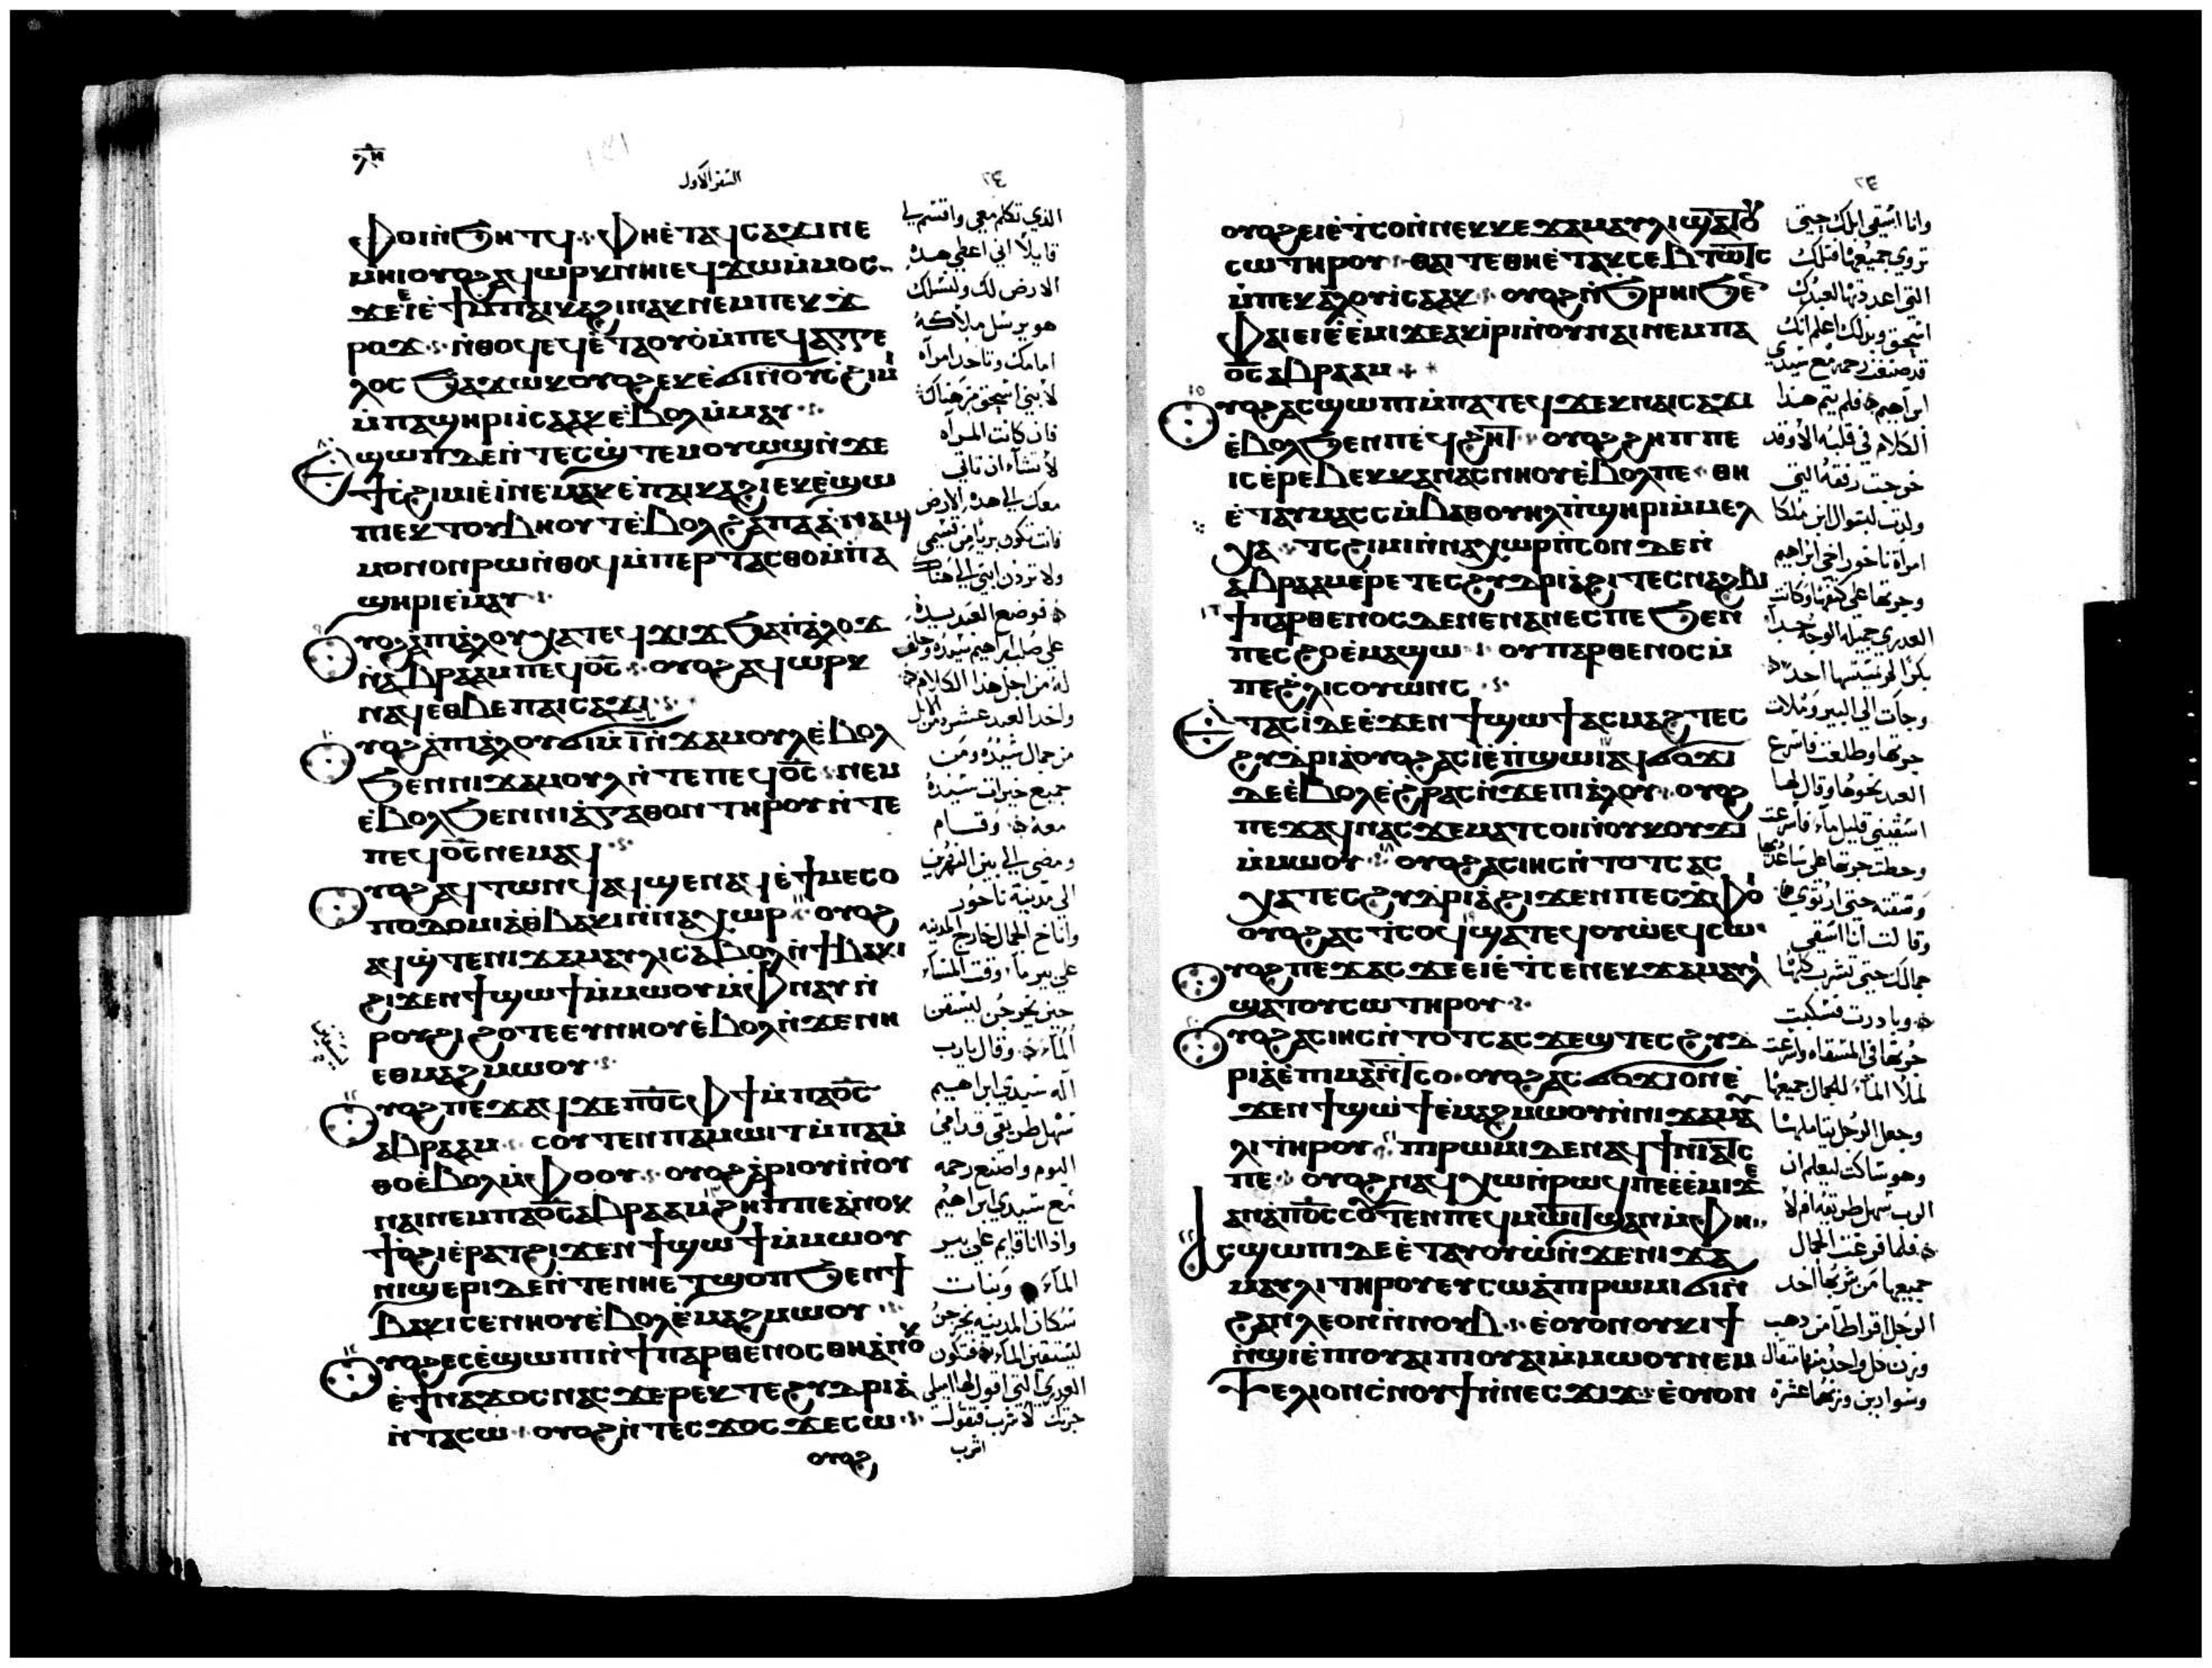 ⲗ̅ⲏ̅
السفر الاول
٢٤
ⲫⲟⲓⲛ̀ϧⲏⲧϥ ⲫⲏⲉ̀ⲧⲁϥⲥⲁϫⲓⲛⲉ
ⲙⲏⲓⲟⲩⲟϩⲁϥⲱⲣⲕⲛⲏⲓⲉϥϫⲱⲙ̀ⲙⲟⲥ
ϫⲉⲉⲓⲉ̀ϯⲙ̀ⲡⲁⲓⲕⲁϩⲓⲛⲁⲕⲛⲉⲙⲡⲉⲕϫ
ⲣⲟϫ ⲛ̀ⲑⲟϥⲉϥⲉ̀ⲧⲁⲟⲩⲟ̀ⲙ̀ⲡⲉϥⲁⲅⲅⲉ
ⲗⲟⲥϧⲁϫⲱⲕⲟⲩⲟϩⲉⲕⲉ̀ϭⲓⲛ̀ⲟⲩⲥϩⲓⲙⲓ
ⲙ̀ⲡⲁϣⲏⲣⲓⲓⲥⲁⲁⲕⲉ̀ⲃⲟⲗⲙ̀ⲙⲁⲩ
ⲉϣⲱⲡⲇⲉⲛ̀ⲧⲉⲥϣ̀ⲧⲉⲙⲟⲩⲱϣⲛ̀ϫⲉ
ϯⲥ̀ϩⲓⲙⲓⲉ̀ⲓ̀ⲛⲉⲙⲁⲕⲉ̀ⲡⲁⲓⲕⲁϩⲓⲉⲕⲉ̀ϣⲱ
ⲡⲓⲉⲕⲧⲟⲩⲃⲏⲟⲩⲧⲉ̀ⲃⲟⲗϩⲁⲡⲁⲁ̀ⲛⲁϣ
ⲙⲟⲛⲟⲛⲣⲱⲛ̀ⲑⲟϥⲙ̀ⲡⲉⲣⲧⲁⲥⲑⲟⲙ̀ⲡⲁ
ϣⲏⲣⲓⲉ̀ⲙⲁⲩ
ⲟⲩⲟϩⲁ̀ⲡⲓⲁ̀ⲗⲟⲩⲭⲁⲧⲉϥϫⲓϫϧⲁⲡⲁ̀ⲗⲟϫ
ⲛ̀ⲁⲃⲣⲁⲁⲙⲡⲉϥⲟ̅ⲥ̅ ⲟⲩⲟϩⲁϥⲱⲣⲕ
ⲛⲁϥⲉⲑⲃⲉⲡⲁⲓⲥⲁϫⲓ
ⲟⲩⲟϩⲁ̀ⲡⲓⲁ̀ⲗⲟⲩϭⲓⲙ̀ⲓ̅ⲛ̀ϫⲁⲙⲟⲩⲗⲉ̀ⲃⲟⲗ
ϧⲉⲛⲛⲓϫⲁⲙⲟⲩⲗⲛ̀ⲧⲉⲡⲉϥⲟ̅ⲥ̅ ⲛⲉⲙ
ⲉ̀ⲃⲟⲗϧⲉⲛⲛⲓⲁ̀ⲅⲁⲑⲟⲛⲧⲏⲣⲟⲩⲛ̀ⲧⲉ
ⲡⲉϥⲟ̅ⲥ̅ⲛⲉⲙⲁϥ
ⲟⲩⲟϩⲁϥⲧⲱⲛϥⲁϥϣⲉⲛⲁϥⲉ̀ϯⲙⲉⲥⲟ
ⲡⲟⲇⲟⲙⲓⲁⲑ̀ⲃⲁⲕⲓⲛ̀ⲛⲁⲭⲱⲣ ⲟⲩⲟϩ
ⲁϥϣ̀ⲧⲉⲛⲓϫⲁⲙⲁⲩⲗⲓⲥⲁⲃⲟⲗⲛ̀ϯⲃⲁⲕⲓ
ϩⲓϫⲉⲛϯϣⲱϯⲙ̀ⲙⲱⲟⲩⲙ̀ⲫⲛⲁⲩⲛ̀
ⲣⲟⲩϩⲓϩⲟⲧⲉⲉⲩⲛⲏⲟⲩⲉ̀ⲃⲟⲗⲛ̀ϫⲉⲛⲏ
ⲉⲑⲙⲁϩⲙⲱⲟⲩ
ⲟⲩⲟϩⲡⲉϫⲁϥϫⲉⲡⲟ̅ⲥ̅ⲫϯⲙ̀ⲡⲁⲟ̅ⲥ̅
ⲁⲃⲣⲁⲁⲙ ⲥⲟⲩⲧⲉⲛⲡⲁⲙⲱⲓⲧⲙ̀ⲡⲁⲙ̀
ⲑⲟⲉ̀ⲃⲟⲗⲙ̀ⲫⲟⲟⲩ ⲟⲩⲟϩⲁ̀ⲣⲓⲟⲩⲓ̀ⲛ̀ⲟⲩ
ⲛⲁⲓⲛⲉⲙⲡⲁⲟ̅ⲥ̅ⲁⲃⲣⲁⲁⲙ ϩⲏⲡⲡⲉⲁ̀ⲛⲟⲕ
ϯⲟ̀ϩⲓⲉ̀ⲣⲁⲧϩⲓϫⲉⲛϯϣⲱϯⲙ̀ⲙⲱⲟⲩ
ⲛⲓϣⲉⲣⲓⲇⲉⲛ̀ⲧⲉⲛⲏⲉⲧϣⲟⲡϧⲉⲛϯ
ⲃⲁⲕⲓⲥⲉⲛⲏⲟⲩⲉ̀ⲃⲟⲗⲉ̀ⲙⲁϩⲙⲱⲟⲩ
ⲟⲩⲟϩⲉⲥⲉ̀ϣⲱⲡⲓⲛ̀ϯⲡⲁⲣⲑⲉⲛⲟⲥⲑⲏⲁ̀ⲛⲟⲕ
ⲉ̀ϯⲛⲁϫⲟⲥⲛⲁⲥϫⲉⲣⲉⲕⲧⲉϩⲩⲇⲣⲓⲁ̀
ⲛ̀ⲧⲁⲥⲱ ⲟⲩⲟϩⲛ̀ⲧⲉⲥϫⲟⲥϫⲉⲥⲱ
ⲟⲩⲟϩ
الذي تكلم معي واقسم لي
قايلا اني اعطي هذه
الارض لك ولنسلك
هو يرسل ملاكه
امامك وتاخد امراه
لابني اسحق من هناك
فان كانت المراه
لا تشاء ان تاتي
معك الي هذه الارض
فانت تكون بريا من قسمي
ولا ترد ابني الي هناك
فوضع العبد يده
علي صلب ابراهيم سيده وحلف
له من اجل هذا الكلام
واخد العبد عشره من الابل
من جمال سيده ومن
جميع خيرات سيده
معه وقام
ومضي الي بين النهرين
الي مدينة ناحور
واناخ الجمال خارج المدينه
علي بير ماء وقت المساء
حين يخرجن ليستقن
الماء وقال يارب
اله سيدي ابراهيم
سهل طريقي قدامي
اليوم واصنع رحمه
مع سيدي ابراهيم
واذا انا قايم علي بير
الماء وبنات
سكان المدينه يخرجن
ليستقين الماء فتكون
العدري التي اقول لها اميلي
جرتك لاشرب فتقول
اشرب
ⲟⲩⲟϩⲉⲓⲉ̀ⲧⲥⲟⲛ̀ⲛⲉⲕⲕⲉϫⲁⲙⲁⲩⲗⲓϣⲁⲧⲟⲩ
ⲥⲱⲧⲏⲣⲟⲩ ⲑⲁⲓⲧⲉⲑⲏⲉ̀ⲧⲁⲕⲥⲉⲃⲧⲱⲧⲥ
ⲙ̀ⲡⲉⲕⲁ̀ⲗⲟⲩⲓ̀ⲥⲁⲁⲕ ⲟⲩⲟϩⲛ̀ϧⲣⲏⲓϧⲉⲛ
ⲫⲁⲓⲉⲓⲉ̀ⲉ̀ⲙⲓϫⲉⲁⲕⲓ̀ⲣⲓⲛ̀ⲟⲩⲛⲁⲓⲛⲉⲙⲡⲁ
ⲟ̅ⲥ̅ⲁⲃⲣⲁⲁⲙ
ⲟⲩⲟϩⲁⲥϣⲱⲡⲓⲙ̀ⲡⲁⲧⲉϥϫⲉⲕⲛⲁⲓⲥⲁϫⲓ
ⲉ̀ⲃⲟⲗϧⲉⲛⲡⲉϥϩⲏⲧ ⲟⲩⲟϩϩⲏⲡⲡⲉ
ⲓⲥⲉ̀ⲣⲉⲃⲉⲕⲕⲁⲛⲁⲥⲛⲏⲟⲩⲉ̀ⲃⲟⲗⲡⲉ ⲑⲏ
ⲉ̀ⲧⲁⲩⲙⲁⲥⲥⲙ̀ⲃⲁⲑⲟⲩⲏⲗⲡ̀ϣⲏⲣⲓⲙ̀ⲙⲉⲗ
ⲭⲁ ⲧⲥϩⲓⲙⲓⲛ̀ⲛⲁⲭⲱⲣⲡ̀ⲥⲟⲛⲇⲉⲛ̀
ⲁⲃⲣⲁⲁⲙⲉ̀ⲣⲉⲧⲉⲥϩⲩⲇⲣⲓⲁ̀ϩⲓⲧⲉⲥⲛⲁϩⲃⲓ
ϯⲡⲁⲣⲑⲉⲛⲟⲥⲇⲉⲛⲉⲛⲁⲛⲉⲥⲡⲉϧⲉⲛ
ⲡⲉⲥϩⲟⲉ̀ⲙⲁϣⲱ ⲟⲩⲡⲁⲣⲑⲉⲛⲟⲥⲙ̀
ⲡⲉϩⲗⲓⲥⲟⲩⲱⲛⲥ
ⲉⲧⲁⲥⲓ̀ⲇⲉⲉ̀ϫⲉⲛϯϣⲱϯⲁⲥⲙⲁϩⲧⲉⲥ
ϩⲩⲇⲣⲓⲁ̀ⲟⲩⲟϩⲁⲥⲓ̀ⲉ̀ⲡ̀ϣⲱⲓⲁϥϭⲟϫⲓ
ⲇⲉⲉ̀ⲃⲟⲗⲉ̀ϩⲣⲁⲥⲛ̀ϫⲉⲡⲓⲁ̀ⲗⲟⲩ ⲟⲩⲟϩ
ⲡⲉϫⲁϥⲛⲁⲥϫⲉⲙⲁⲧⲥⲟⲓⲛ̀ⲟⲩⲕⲟⲩϫⲓ
ⲙ̀ⲙⲱⲟⲩ ⲟⲩⲟϩⲁⲥⲓⲏⲥⲛ̀ⲧⲟⲧⲥⲁⲥ
ⲭⲁⲧⲉⲥϩⲩⲇⲣⲓⲁ̀ϩⲓϫⲉⲛⲡⲉⲥϫⲫⲟⲓ
ⲟⲩⲟϩⲁⲥⲧ̀ⲥⲟϥϣⲁⲧⲉϥⲟⲩⲱ̀ⲉϥⲥⲱ
ⲟⲩⲟϩⲡⲉϫⲁⲥϫⲉⲉⲓⲉ̀ⲧ̀ⲥⲉⲛⲉⲕϫⲁⲙⲁⲩⲗⲓ
ϣⲁⲧⲟⲩⲥⲱⲧⲏⲣⲟⲩ
ⲟⲩⲟϩⲁⲥⲓⲏⲥⲛ̀ⲧⲟⲧⲥⲁⲥϫⲉϣⲧⲉⲥϩⲩⲇ
ⲣⲓⲁ̀ⲉ̀ⲡⲓⲙⲁⲛ̀ⲧⲥⲟ ⲟⲩⲟϩⲁⲥϭⲟϫⲓⲟⲛⲉ̀
ϫⲉⲛϯϣⲱϯⲉ̀ⲙⲁϩⲙⲱⲟⲩⲛ̀ⲛⲓϫⲁⲙⲁⲩ
ⲗⲓⲧⲏⲣⲟⲩ ⲡⲓⲣⲱⲙⲓⲇⲉⲛⲁϥϯⲛ̀ⲓⲁⲧⲥ
ⲡⲉ ⲟⲩⲟϩⲛⲁϥⲭⲱⲛ̀ⲣⲱϥⲡⲉⲉ̀ⲉ̀ⲙⲓϫⲉ
ⲁⲛⲁⲡⲟ̅ⲥ̅ⲥⲟⲩⲧⲉⲛⲡⲉϥⲙⲱⲓⲧϣⲁⲛⲙ̀ⲫⲏ
ⲁⲥϣⲱⲡⲓⲇⲉⲉ̀ⲧⲁⲩⲟⲩⲱ̀ⲛ̀ϫⲉⲛⲓϫⲁ
ⲙⲁⲩⲗⲓⲧⲏⲣⲟⲩⲉⲩⲥⲱⲁ̀ⲡⲓⲣⲱⲙⲓϭⲓⲛ̀
ϩⲁⲛⲗⲉⲟⲛⲛ̀ⲛⲟⲩⲃ ⲉⲟⲩⲟⲛⲟⲩⲕⲓϯ
ⲛ̀ϣⲓⲉ̀ⲡⲓⲟⲩⲁⲓⲡⲓⲟⲩⲁⲓⲙ̀ⲙⲱⲟⲩⲛⲉⲙ
ⲯⲉⲗⲓⲟⲛⲥ̀ⲛⲟⲩϯⲛ̀ⲛⲉⲥϫⲓϫ ⲉ̀ⲟⲩⲟⲛ
وانا اسقي ابلك حتي
تروي جميعها فتلك
التي اعددتها لعبدك
اسحق وبذلك اعلم انك
قد صنعت رحمه مع سيدي
ابراهيم فلم يتم هذا
الكلام في قلبه الا وقد
خرجت رفقه التي
ولدت لبتوال ابن ملكا
امراة ناحور اخي ابراهيم
وجرتها علي كتفها وكانت
العدري جميله الوجه جدا
بكرا لم يمسسها احد
وجات الي البير وملات
جرتها وطلعت فاسرع
العبد نحوها وقال لها
اسقيني قليل ماء فاسرعت
وحطت جرتها علي ساعدها
وسقته حتي ارتوي
وقالت انا اسقي
جمالك حتي تشرب كلها
وبادرت فسكبت
جرتها في المسقاه واسرعت
لملا الماء للجمال جميعها
وجعل الرجل يتاملها
وهو ساكت ليعلم ان
الرب سهل طريقه ام لا
فلما فرغت الجمال
جميعها من شربها اخد
الرجل اقراطا من دهب
وزن كل واحد منها متقال
وسوارين وزنهما عشره